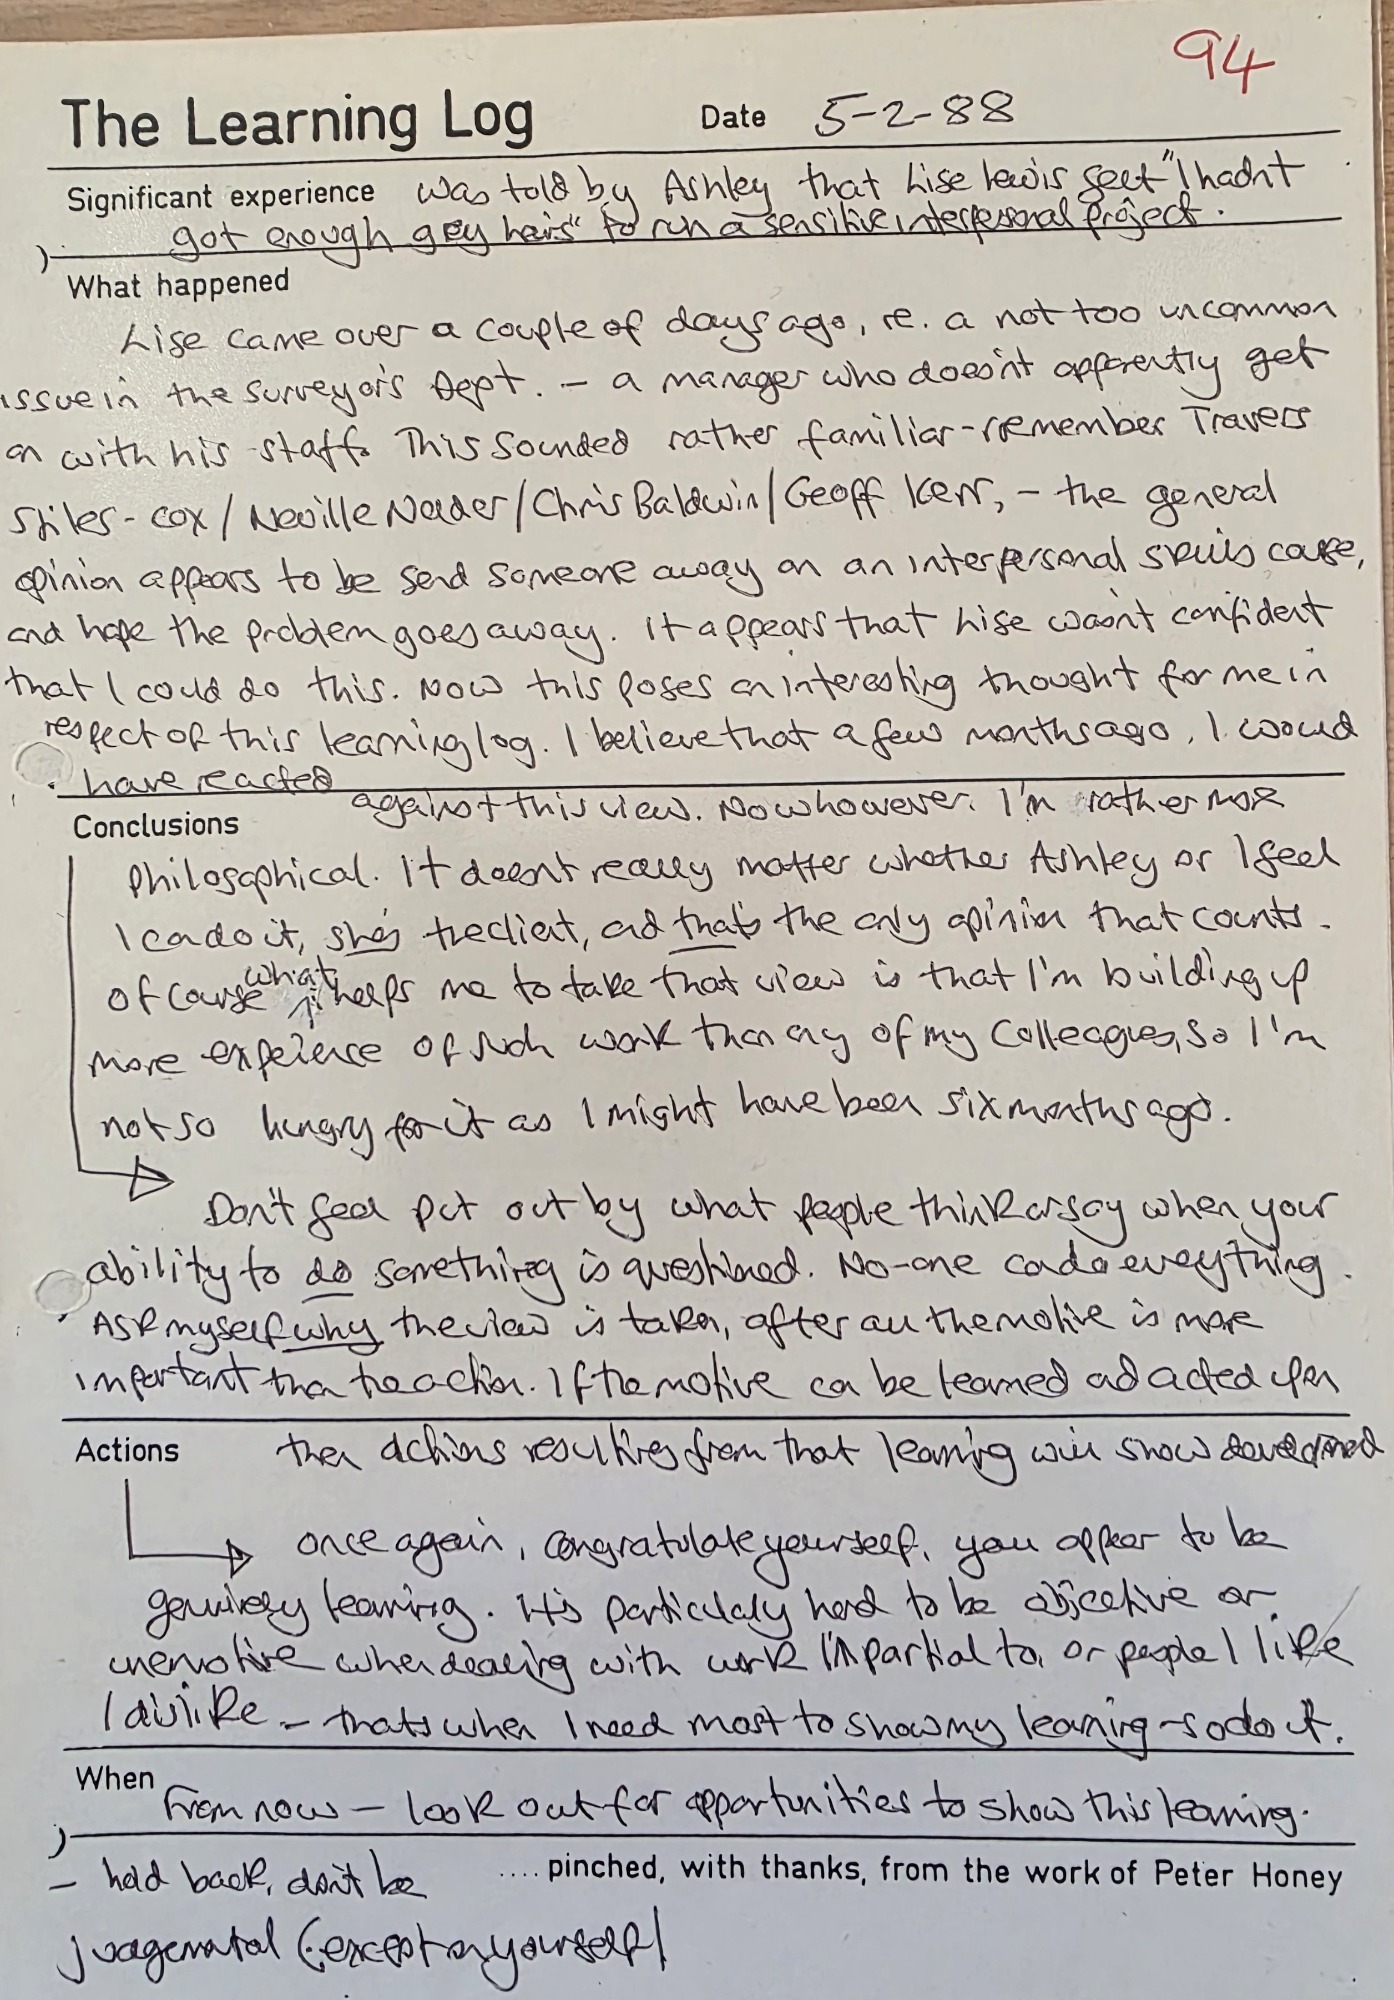 94
The Learning Log Date 5-2-88
Significant experience was told by Ashley that Lise Lewis felt "I hadn't
got enough grey hairs" to run a sensitive interpersonal project.
What happened
Lise came over a couple of days ago, re. a not too uncommon
issue in the Surveyor's Dept. - a manager who doesn't apparently get
on with his staff. This sounded rather familiar - remember Travers
Stiles-Cox / Neville Nader / Chris Baldwin / Geoff Kerr, - the general
opinion appears to be send someone away on an interpersonal skills course,
and hope the problem goes away. It appears that Lise wasn't confident
that I could do this. Now this poses an interesting thought for me in
respect of this learning log. I believe that a few months ago, I would
have reacted
against this view. Now however, I'm rather more
Conclusions
Philosophical. It doesn't really matter whether Ashley or I feel
I can do it, she's the client, and that's the only opinion that counts.
Of course what helps me to take that view is that I'm building up
more experience of such work than any of my colleagues, so I'm
not so hungry for it as I might have been six months ago.
Don't feel put out by what people think or say when your
ability to do something is questioned. No-one can do everything.
Ask myself why the view is taken, after all the motive is more
important than the action. If the motive can be learned and acted upon
Actions then actions resulting from that learning will show
once again, congratulate yourself, you appear to be
genuinely learning. It's particularly hard to be objective or
unemotive when dealing with work I'm partial to, or people I like
/dislike - that's when I need most to show my learning - so do it.
When From now - look out for opportunities to show this learning.
- hold back, don't be .... pinched, with thanks, from the work of Peter Honey
judgemental (except on yourself)